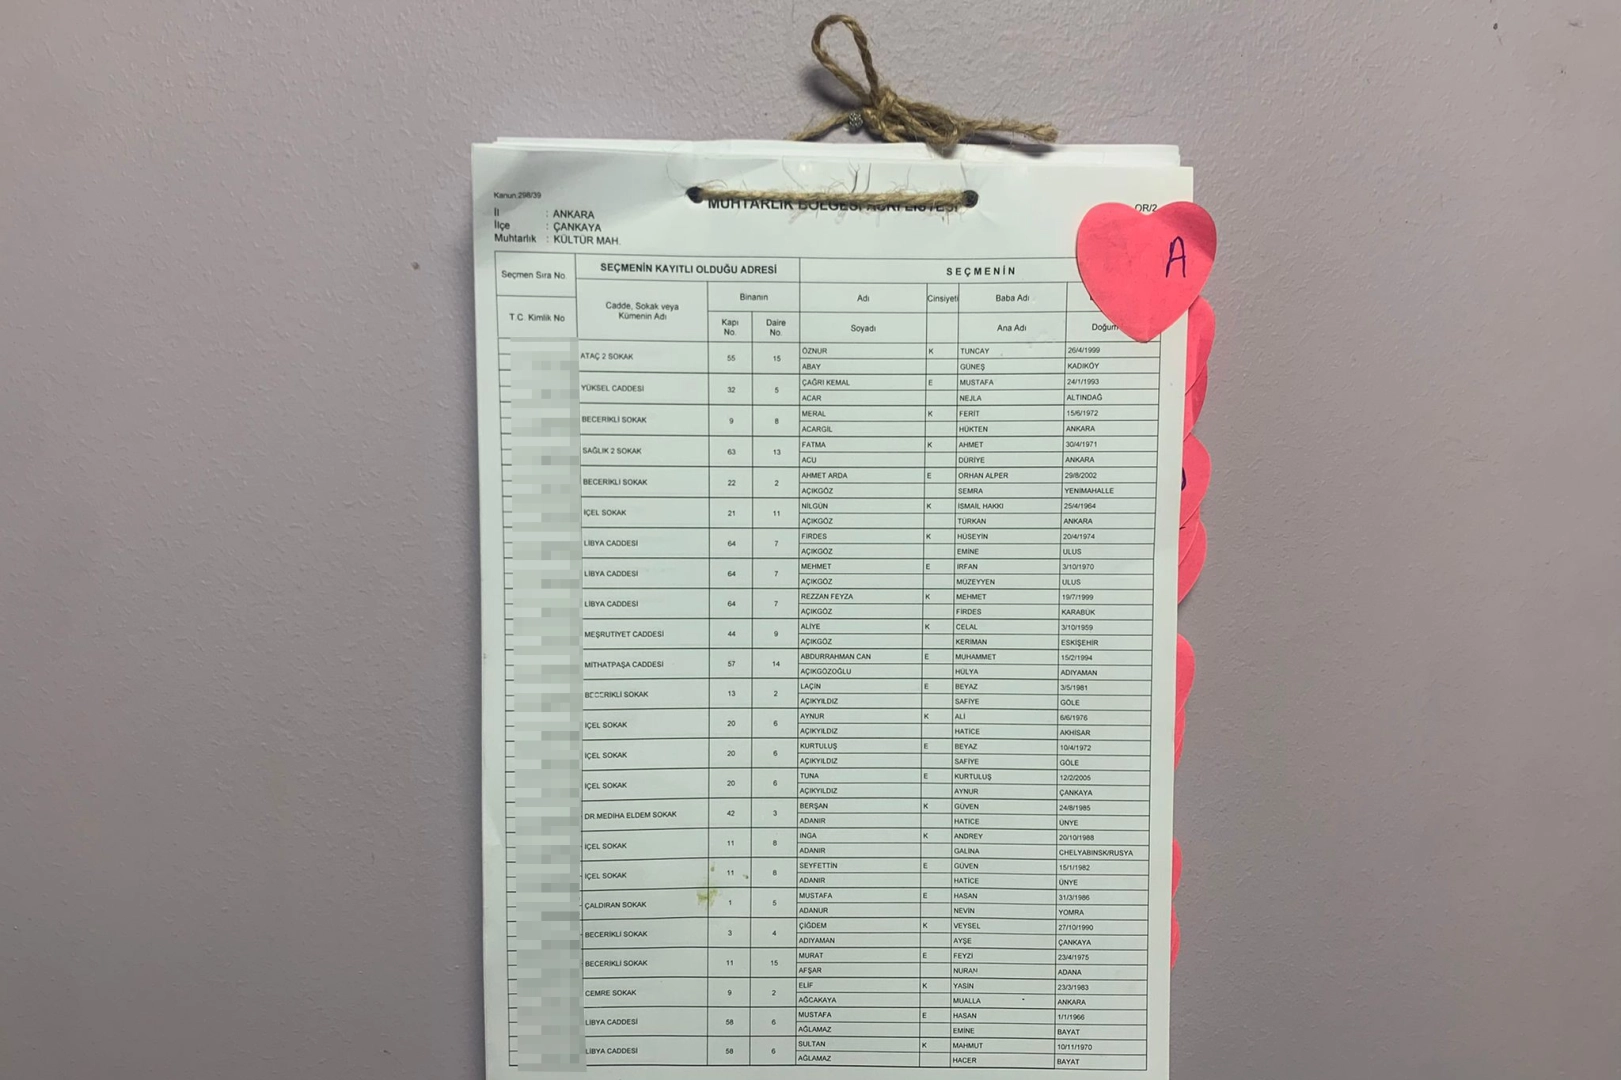 Kanun 298/39
MUHTARLIK BÖLGESİ ASKI LİSTESİ
ÖR/2
A
İl : ANKARA
İlçe : ÇANKAYA
Muhtarlık : KÜLTÜR MAH.
Seçmen Sıra No. SEÇMENİN KAYITLI OLDUĞU ADRESİ SEÇMENİN
T.C. Kimlik No Cadde, Sokak veya Kümenin Adı Binanın Adı Cinsiyeti Baba Adı
Kapı No. Daire No. Soyadı Ana Adı Doğum
ATAÇ 2 SOKAK 55 15 ÖZNUR K TUNCAY 26/4/1999
ABAY GÜNEŞ KADIKÖY
YÜKSEL CADDESİ 32 5 ÇAĞRI KEMAL E MUSTAFA 24/1/1993
ACAR NEJLA ALTINDAĞ
BECERİKLİ SOKAK 9 8 MERAL K FERİT 15/6/1972
ACARGİL HÜKTEN ANKARA
SAĞLIK 2 SOKAK 63 13 FATMA K AHMET 30/4/1971
ACU DÜRİYE ANKARA
BECERİKLİ SOKAK 22 2 AHMET ARDA E ORHAN ALPER 29/8/2002
AÇIKGÖZ SEMRA YENİMAHALLE
İÇEL SOKAK 21 11 NİLGÜN K İSMAİL HAKKI 25/4/1964
AÇIKGÖZ TÜRKAN ANKARA
LİBYA CADDESİ 64 7 FİRDES K HÜSEYİN 20/4/1974
AÇIKGÖZ EMİNE ULUS
LİBYA CADDESİ 64 7 MEHMET E İRFAN 3/10/1970
AÇIKGÖZ MÜZEYYEN ULUS
LİBYA CADDESİ 64 7 REZZAN FEYZA K MEHMET 19/7/1999
AÇIKGÖZ FİRDES KARABÜK
MEŞRUTİYET CADDESİ 44 9 ALİYE K CELAL 3/10/1959
AÇIKGÖZ KERİMAN ESKİŞEHİR
MİTHATPAŞA CADDESİ 57 14 ABDURRAHMAN CAN E MUHAMMET 15/2/1994
AÇIKGÖZOĞLU HÜLYA ADIYAMAN
BECERİKLİ SOKAK 13 2 LAÇİN E BEYAZ 3/5/1981
AÇIKYILDIZ SAFİYE GÖLE
İÇEL SOKAK 20 6 AYNUR K ALİ 6/6/1976
AÇIKYILDIZ HATİCE AKHİSAR
İÇEL SOKAK 20 6 KURTULUŞ E BEYAZ 10/4/1972
AÇIKYILDIZ SAFİYE GÖLE
İÇEL SOKAK 20 6 TUNA E KURTULUŞ 12/2/2005
AÇIKYILDIZ AYNUR ÇANKAYA
DR.MEDİHA ELDEM SOKAK 42 3 BERŞAN K GÜVEN 24/8/1985
ADANIR HATİCE ÜNYE
İÇEL SOKAK 11 8 INGA K ANDREY 20/10/1988
ADANIR GALİNA CHELYABINSK/RUSYA
İÇEL SOKAK 11 8 SEYFETTİN E GÜVEN 15/1/1982
ADANIR HATİCE ÜNYE
ÇALDIRAN SOKAK 1 5 MUSTAFA E HASAN 31/3/1986
ADANUR NEVİN YOMRA
BECERİKLİ SOKAK 3 4 ÇİĞDEM K VEYSEL 27/10/1990
ADIYAMAN AYŞE ÇANKAYA
BECERİKLİ SOKAK 11 15 MURAT E FEYZİ 23/4/1975
AFŞAR NURAN ADANA
CEMRE SOKAK 9 2 ELİF K YASİN 23/3/1983
AĞCAKAYA MUALLA ANKARA
LİBYA CADDESİ 58 6 MUSTAFA E HASAN 1/1/1966
AĞLAMAZ EMİNE BAYAT
LİBYA CADDESİ 58 6 SULTAN K MAHMUT 10/11/1970
AĞLAMAZ HACER BAYAT